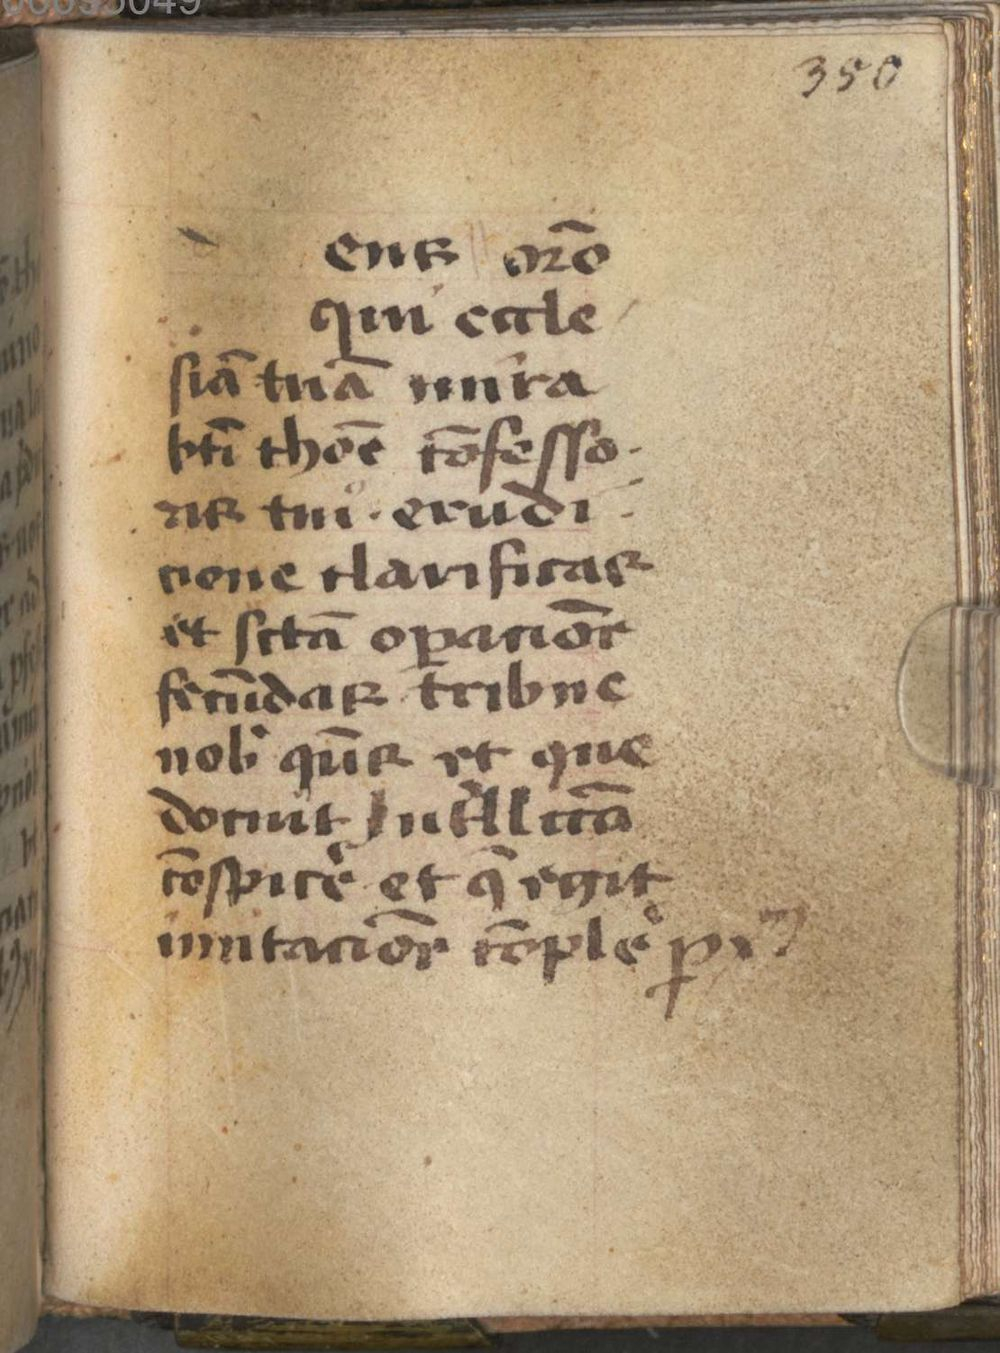 350
eus orō
qui eccle
siā tuā mira
bti thōe cōfesso
ris tui erudi
cione clarificas
et sctā opaciōe
fecūdas tribue
nob qūs et que
docuit Intellcā
cōspicē et q̄ egit
imitaciōe cōplē p